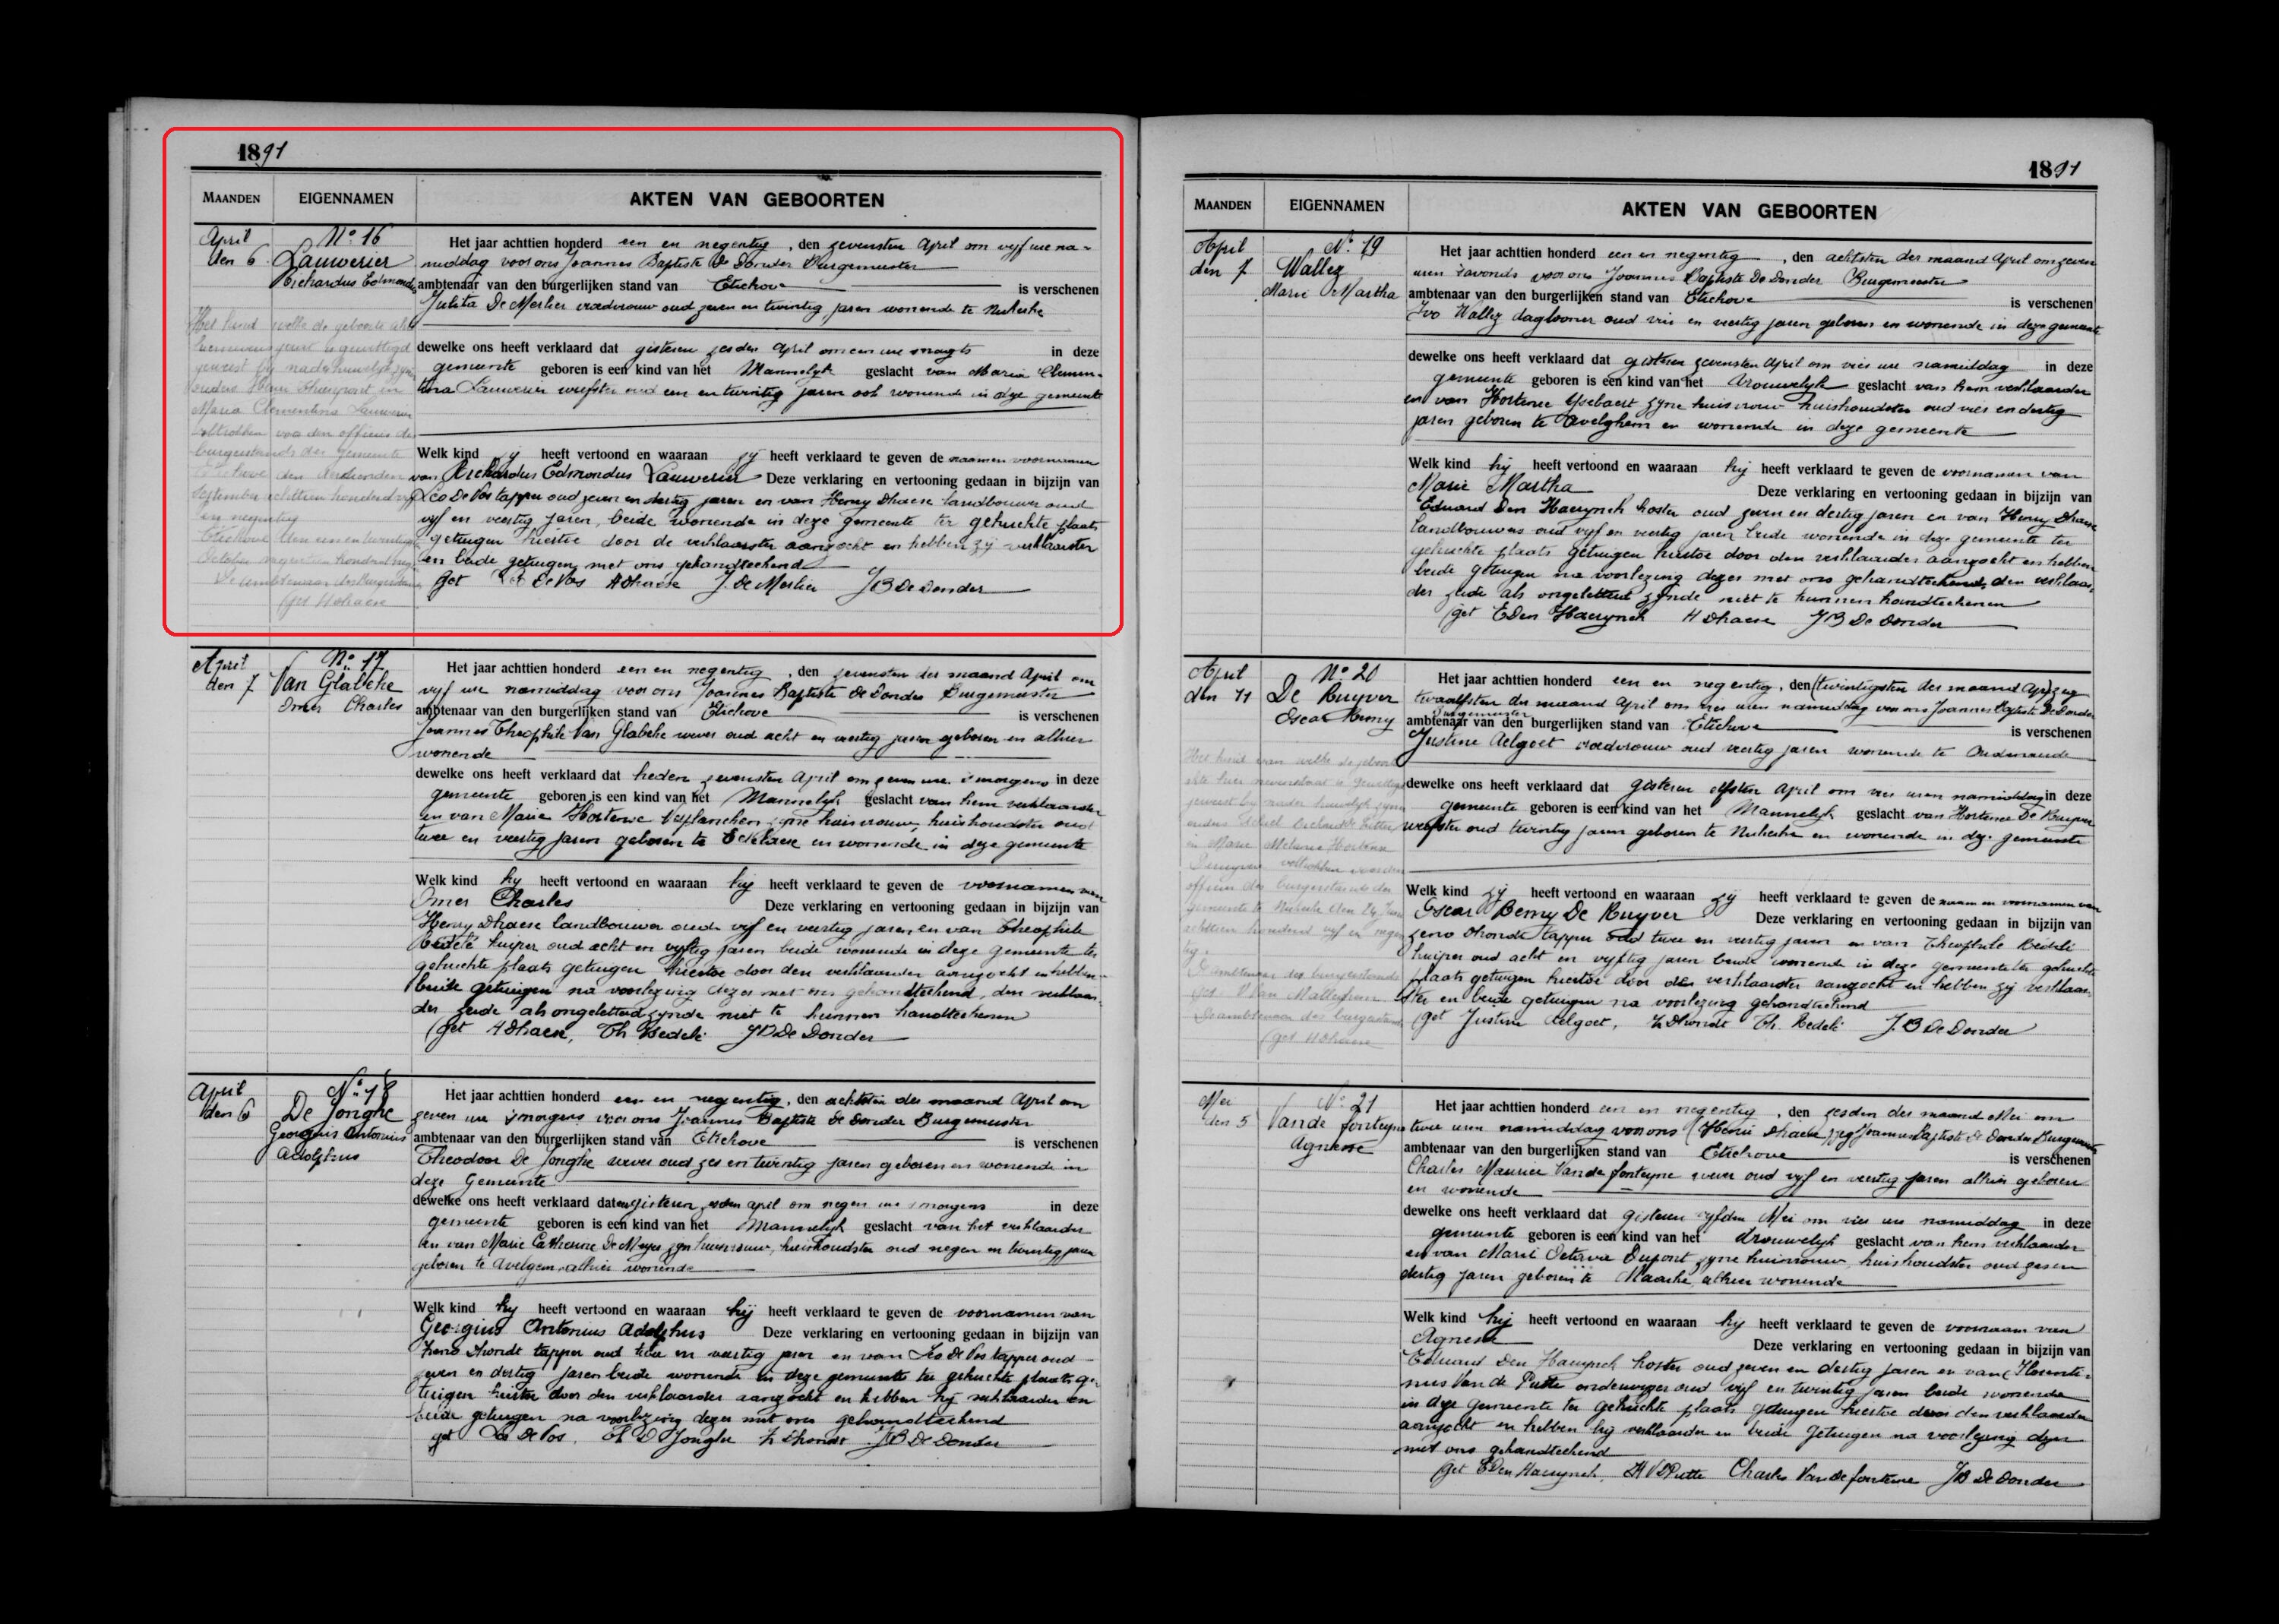 1891
MAANDEN EIGENNAMEN AKTEN VAN GEBOORTEN
April
den 6
Nº 16
Lauwerier
Richardus Edmondus
Het kind welke de geboorte akte
hiernevens geset is gewettigd
geweest by nader huwelyk zyner
ouders Henri in
Maria Clementina Lauwerier
voltrokken voor den officier des
burgerstands der gemeente
Etichove den
September achttien honderd vyf
en negentig
Etichove den een en twintigsten
October negentien honderd
De ambtenaar des Burgerstands
(get HDhaese
Het jaar achttien honderd een en negentig, den zevensten April om vyf ure na-
middag voor ons Joannes Baptiste De Donder Burgemeester
ambtenaar van den burgerlijken stand van Etichove is verschenen
Julita De Merlier vroedvrouw oud zeven en twintig jaren wonende te Nukerke
dewelke ons heeft verklaard dat gisteren zesden April om een ure snagts in deze
gemeente geboren is een kind van het Mannelyk geslacht van Maria Clemen-
tina Lauwerier weefster oud een en twintig jaren ook wonende in deze gemeente
Welk kind zij heeft vertoond en waaraan zij heeft verklaard te geven de naam en voornamen
van Richardus Edmondus Lauwerier Deze verklaring en vertooning gedaan in bijzijn van
Leo De Vos tapper oud zeven en dertig jaren en van Henry Dhaese landbouwer oud
vijf en veertig jaren, beide wonende in deze gemeente ter gekuchte plaats
getuigen hiertoe door de verklaarster aanzocht en hebben zij verklaarster
en beide getuigen met ons gehandteekend
get Leo De Vos HDhaese J. De Merlier JB De Donder
April
den 7
Nº 17
Van Glabeke
Omer Charles
Het jaar achttien honderd een en negentig, den zevensten der maand April om
vijf ure namiddag voor ons Joannes Baptiste De Donder Burgemeester
ambtenaar van den burgerlijken stand van Etichove is verschenen
Joannes Theophile Van Glabeke wever oud acht en veertig jaren geboren en alhier
wonende
dewelke ons heeft verklaard dat heden zevensten April om zeven ure s'morgens in deze
gemeente geboren is een kind van het Mannelyk geslacht van hem verklaarder
en van Marie Hortense Verplancken zyne huisvrouw, huishoudster oud
twee en veertig jaren geboren te Eekelaere en wonende in deze gemeente
Welk kind hy heeft vertoond en waaraan hij heeft verklaard te geven de voornamen van
Omer Charles Deze verklaring en vertooning gedaan in bijzijn van
Henry Dhaese landbouwer oud vyf en veertig jaren en van Theophile
Bedelé kuiper oud acht en vyftig jaren beide wonende in deze gemeente ter
gekuchte plaats getuigen hiertoe door den verklaarder aanzocht en hebben
beide getuigen na voorlezing dezes met ons gehandteekend, den verklaar-
der zeide als ongeletterd zynde niet te kunnen handteekenen
(get HDhaese, Th Bedelé JB De Donder
April
den 6
Nº 18
De Jonghe
Georgius Antonius
Adolphus
Het jaar achttien honderd een en negentig, den achtsten der maand April om
zeven ure s'morgens voor ons Joannes Baptiste De Donder Burgemeester
ambtenaar van den burgerlijken stand van Etichove is verschenen
Theodoor De Jonghe wever oud zes en twintig jaren geboren en wonende in
deze Gemeente
dewelke ons heeft verklaard dat eergisteren zesden April om negen ure s'morgens in deze
gemeente geboren is een kind van het Mannelyk geslacht van het verklaarder
en van Marie Catherine De Meyer zyn huisvrouw, huishoudster oud negen en twintig jaren
geboren te Avelgem alhier wonende
Welk kind hy heeft vertoond en waaraan hij heeft verklaard te geven de voornamen van
Georgius Antonius Adolphus Deze verklaring en vertooning gedaan in bijzijn van
Zeno Dhondt tapper oud twee en veertig jaren en van Leo De Vos tapper oud
zeven en dertig jaren beide wonende in deze gemeente ter gekuchte plaats ge-
tuigen hiertoe door den verklaarder aanzocht en hebben hij verklaarder en
beide getuigen na voorlezing dezes met ons gehandteekend
get Leo De Vos, Th D Jonghe Z Dhondt JB De Donder
1891
MAANDEN EIGENNAMEN AKTEN VAN GEBOORTEN
April
den 7
Nº 19
Wallez
Marie Martha
Het jaar achttien honderd een en negentig, den achtsten der maand April om zeven
uren s'avonds voor ons Joannes Baptiste De Donder Burgemeester
ambtenaar van den burgerlijken stand van Etichove is verschenen
Ivo Wallez daglooner oud vier en veertig jaren geboren en wonende in deze gemeente
dewelke ons heeft verklaard dat gisteren zevensten April om vier ure namiddag in deze
gemeente geboren is een kind van het vrouwelyk geslacht van hem verklaarder
en van Hortense Ysebaert zyne huisvrouw huishoudster oud vier en dertig
jaren geboren te Avelghem en wonende in deze gemeente
Welk kind hij heeft vertoond en waaraan hij heeft verklaard te geven de voornamen van
Marie Martha Deze verklaring en vertooning gedaan in bijzijn van
Eduard Den Haerynck koster oud zeven en dertig jaren en van Henry Dhaese
landbouwers oud vyf en veertig jaren beide wonende in deze gemeente ter
gekuchte plaats getuigen hiertoe door den verklaarder aanzocht en hebben
beide getuigen na voorlezing dezes met ons gehandteekend, den verklaar-
der zeide als ongeletterd zynde niet te kunnen handteekenen
(get EDen Haerynck HDhaese JB De Donder
April
den 11
Nº 20
De Ruyver
Oscar Remy
Het kind van welke de geboorte
akte hier nevenstaat is gewettigd
geweest by nader huwelyk zyner
ouders
en Marie Melanie Hortense
Deruyver voltrokken voor den
officier des burgerstands der
gemeente te Nukerke den 24 Juni
achttien honderd vyf en negen-
tig.
De ambtenaar des burgerstands
get
De ambtenaar des burgerstands
(get HDhaese
Het jaar achttien honderd een en negentig, den (twintigsten der maand Apr) zeg
twaalfsten der maand April om vier uren namiddag voor ons Joannes Baptiste De Donder
Burgemeester
ambtenaar van den burgerlijken stand van Etichove is verschenen
Justine Aelgoet vroedvrouw oud veertig jaren wonende te Oudenaarde
dewelke ons heeft verklaard dat gisteren elfsten April om vier uren namiddag in deze
gemeente geboren is een kind van het Mannelyk geslacht van Hortense De Ruyver
weefster oud twintig jaren geboren te Nukerke en wonende in deze gemeente
Welk kind zij heeft vertoond en waaraan zij heeft verklaard te geven de naam en voornamen van
Oscar Remy De Ruyver Deze verklaring en vertooning gedaan in bijzijn van
Zeno Dhondt tapper oud twee en veertig jaren en van Theophile Bedelé
kuiper oud acht en vyftig jaren beide wonende in deze gemeente ter gekuchte
plaats getuigen hiertoe door den verklaarster aanzocht en hebben zij verklaar-
ster en beide getuigen na voorlezing gehandteekend
(get Justine Aelgoet, Z Dhondt Th. Bedelé J.B De Donder
Mei
den 5
Nº 21
Vande fonteyne
Agnesse
Het jaar achttien honderd een en negentig, den zesden der maand Mei om
twee uren namiddag voor ons (Henri Dhaese) zeg Joannes Baptiste De Donder Burgemeester
ambtenaar van den burgerlijken stand van Etichove is verschenen
Charles Maurice Vande fonteyne wever oud vyf en veertig jaren alhier geboren
en wonende
dewelke ons heeft verklaard dat gisteren vyfden Mei om vier ure namiddag in deze
gemeente geboren is een kind van het vrouwelyk geslacht van hem verklaarder
en van Marie Octavie Dupont zyne huisvrouw, huishoudster oud zes en
dertig jaren geboren te Maarke, alhier wonende
Welk kind hij heeft vertoond en waaraan hy heeft verklaard te geven de voornaam van
Agnesse Deze verklaring en vertooning gedaan in bijzijn van
Eduard Den Haerynck koster oud zeven en dertig jaren en van Florenti-
nus Van de Putte onderwyzer oud vijf en twintig jaren beide wonende
in deze gemeente ter gekuchte plaats getuigen hiertoe door den verklaarder
aanzocht en hebben hij verklaarder en beide getuigen na voorlezing dezes
met ons gehandteekend
(get EDen Haerynck, VDPutte Charles Vandefonteyne JB De Donder